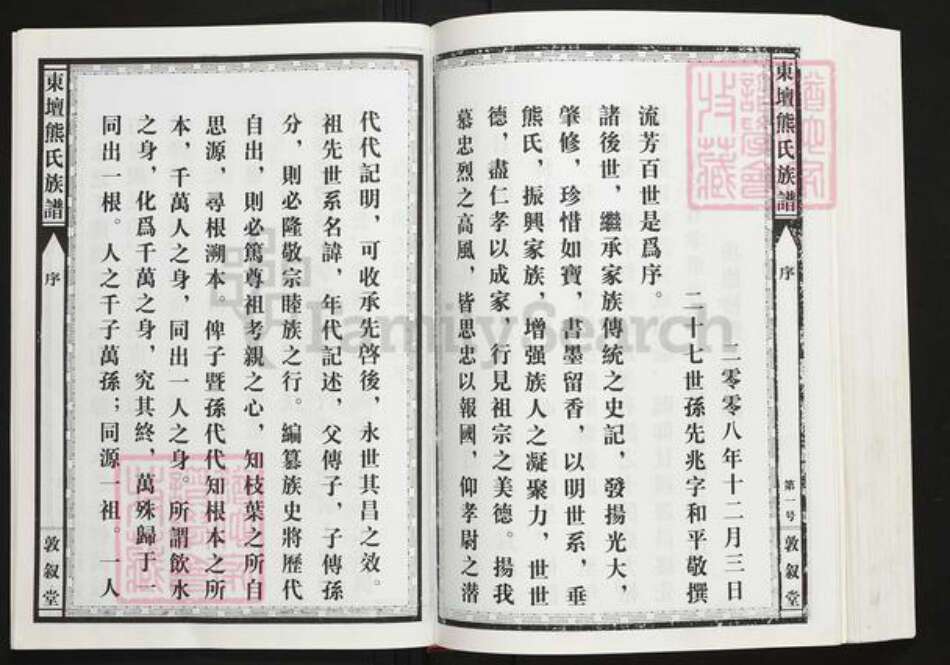 東壇熊氏族譜
序
敦叙堂
同出一根。人之千子萬孫；同源一祖。一人
之身，化爲千萬之身，究其終，萬殊歸于一
本，千萬人之身，同出一人之身。所謂飲水
思源，尋根溯本。俾子暨孫代代知根本之所
自出，則必篤尊祖考親之心，知枝葉之所自
分，則必隆敬宗睦族之行。編纂族史將歷代
祖先世系名諱，年代記述，父傳子，子傳孫
代代記明，可收承先啓後，永世其昌之效。
慕忠烈之高風，皆思忠以報國，仰孝尉之潛
德，盡仁孝以成家，行見祖宗之美德。揚我
熊氏，振興家族，增强族人之凝聚力，世世
肇修，珍惜如寶，書墨留香，以明世系，垂
諸後世，繼承家族傳統之史記，發揚光大，
流芳百世是爲序。
二十七世孫先兆字和平敬撰
二零零八年十二月三日
東壇熊氏族譜
序
第一号
敦叙堂
FamilySearch
譜學會
收藏